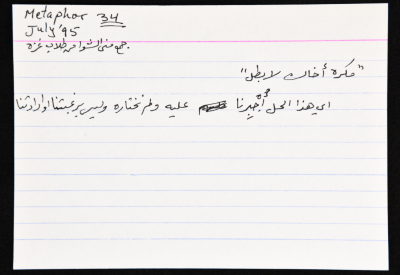 Metaphor 34
July '95
جمع منى الشوا من طلاب غزة
"مكره أخاك لا بطل"
اي هذا الحل أُجبرنا عليه ولم نختاره وليس برغبتنا او ارادتنا